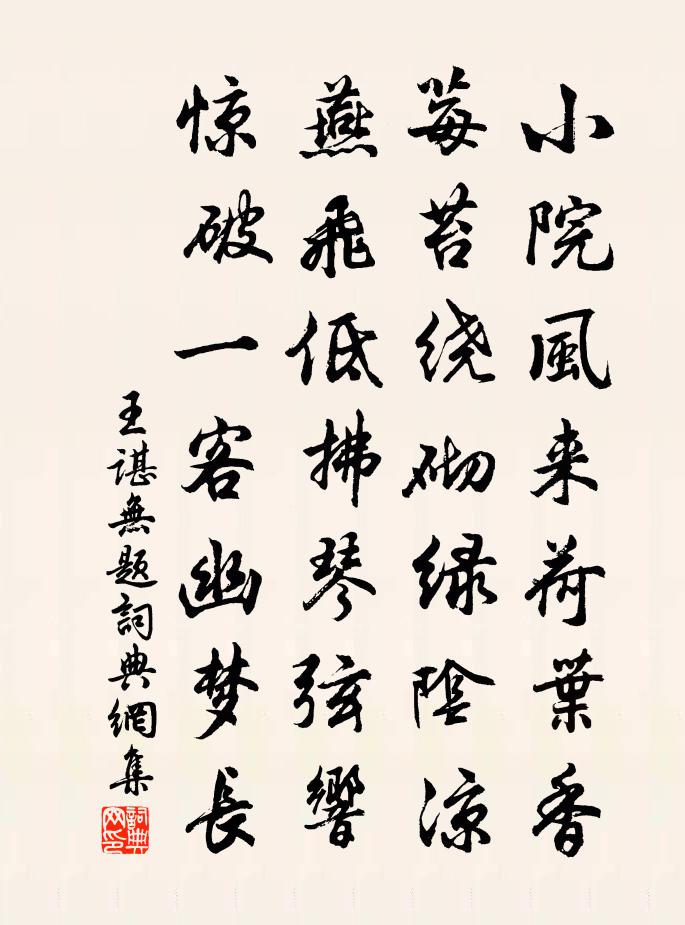 小院風来荷葉香
莓苔绕砌绿陰凉
燕飛低拂琴弦響
惊破一客幽梦長
王諶無题詞典網集
詞典网印